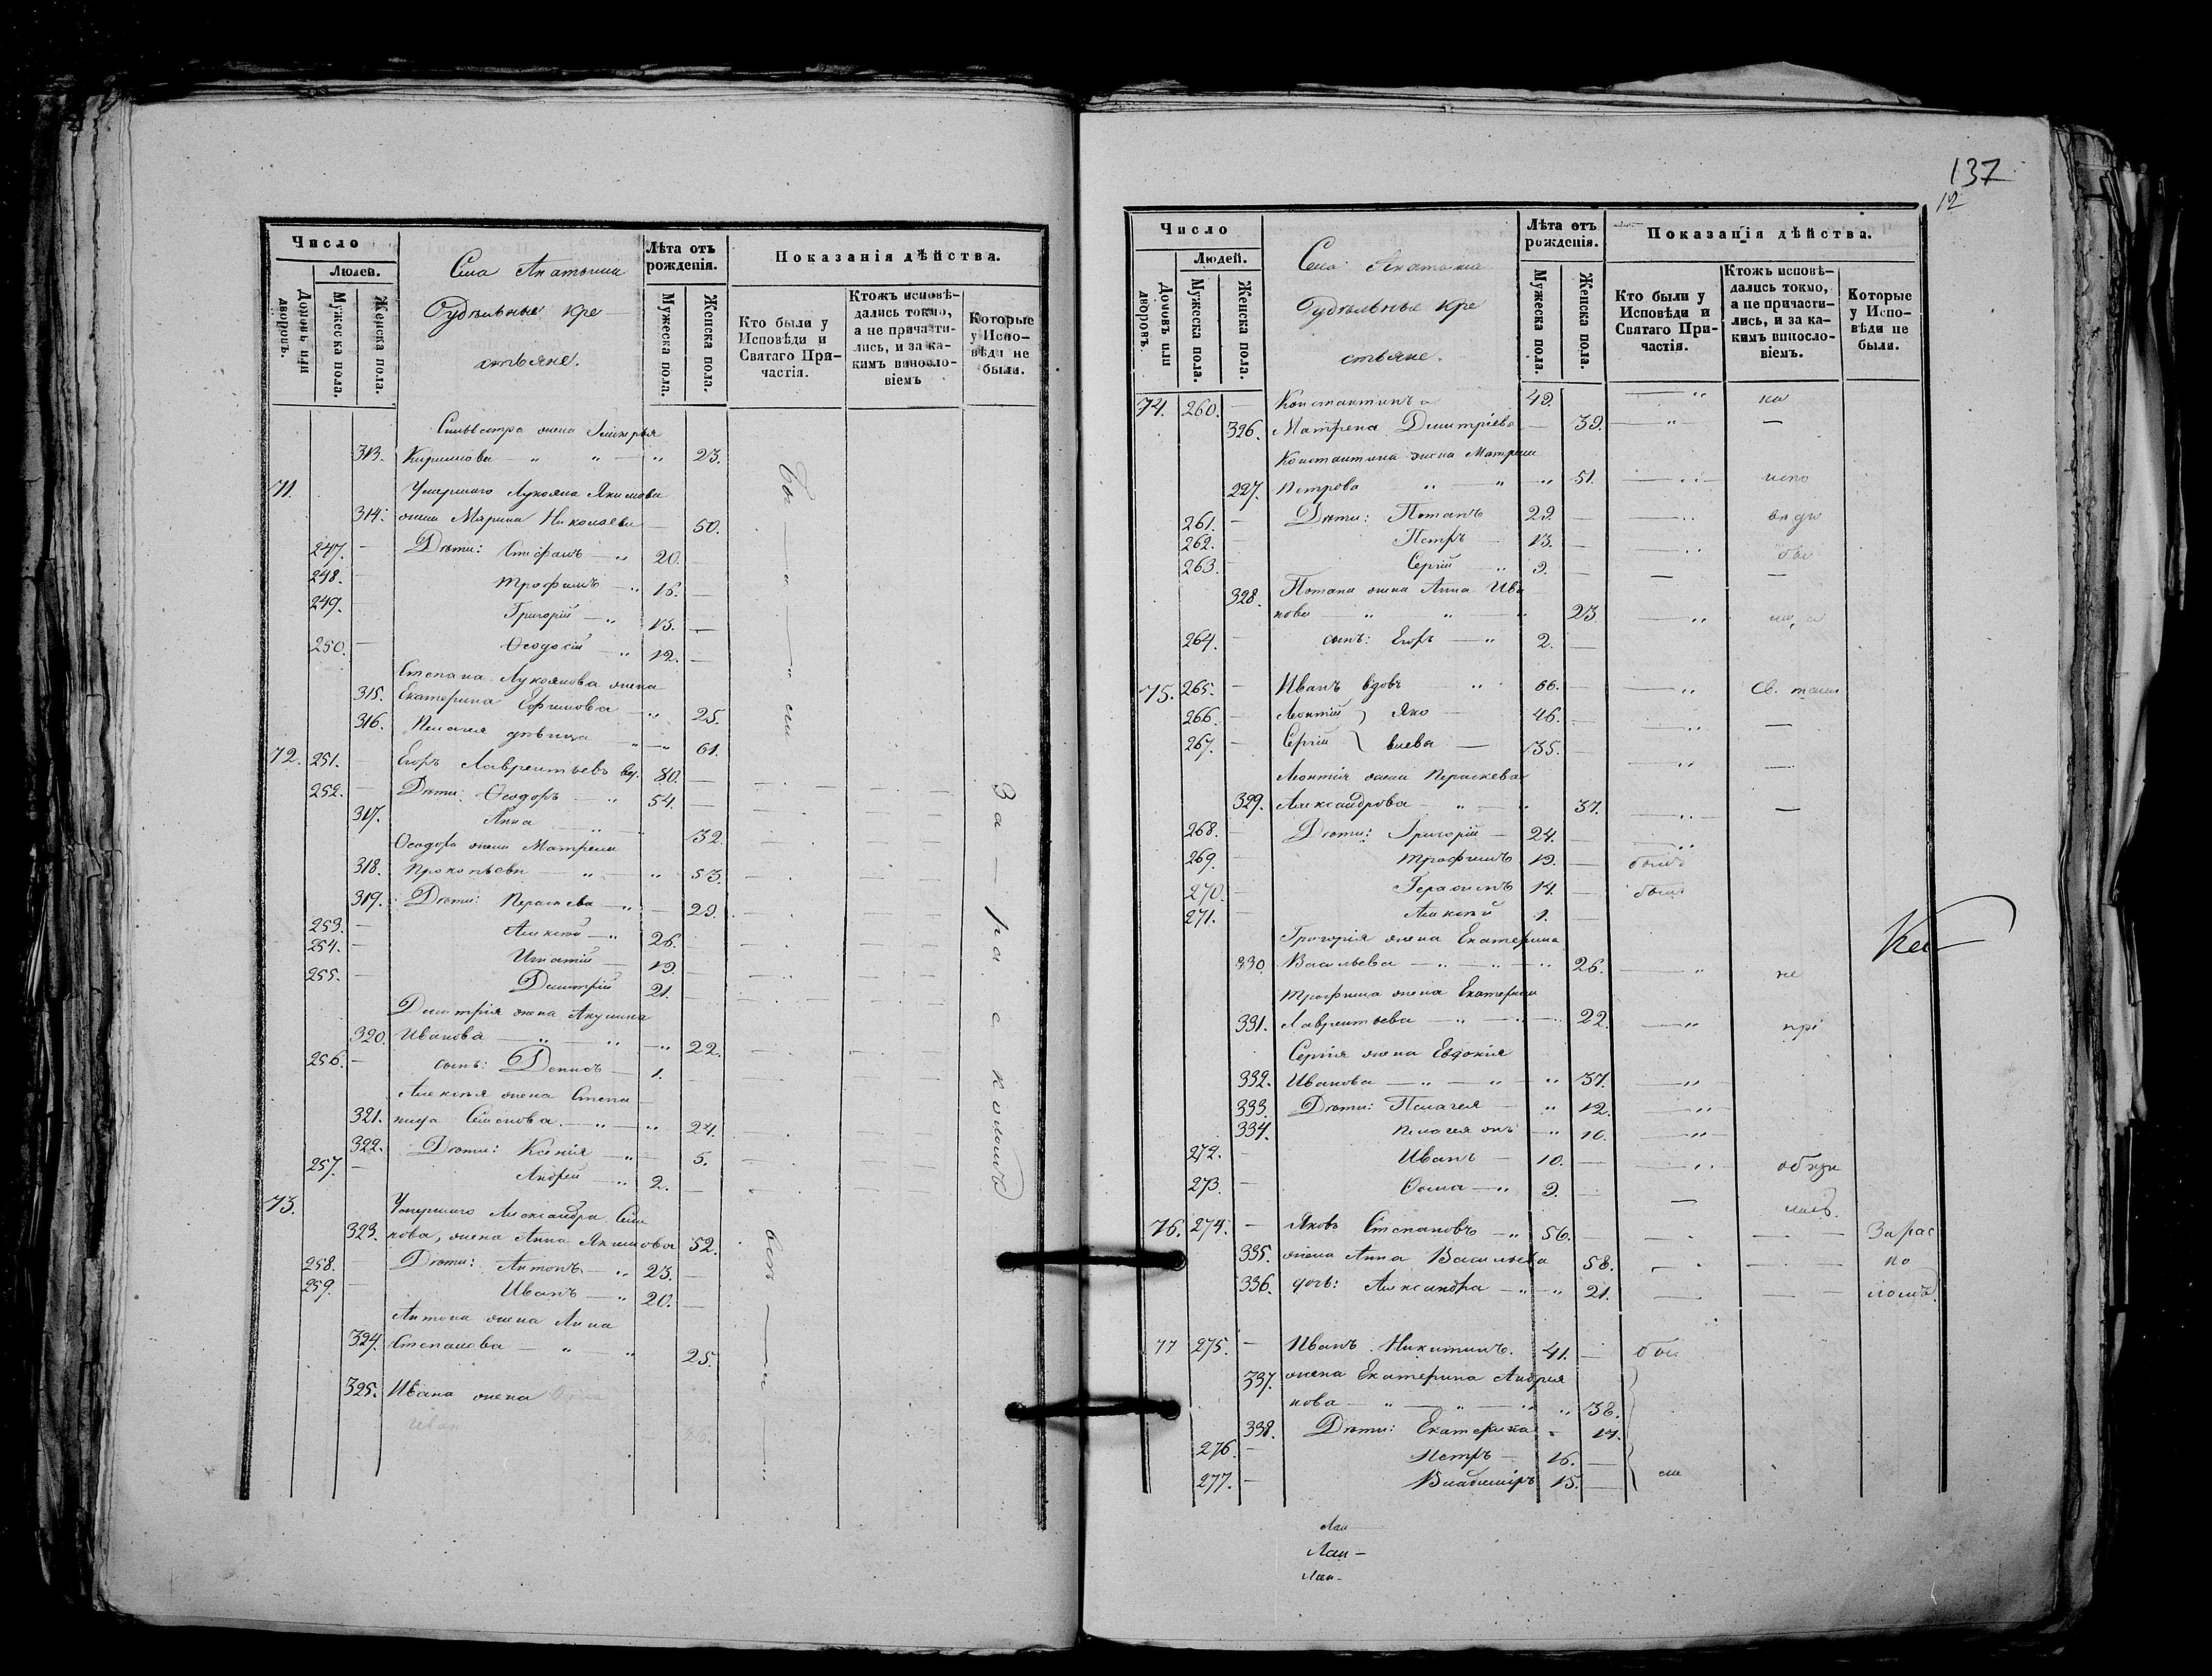 Число
Людей.
Домовъ или дворовъ.
Мужеска пола.
Женска пола.
Села
Удѣльные кре
стьяне.
Лѣта отъ рожденія.
Мужеска пола.
Женска пола.
Показанія дѣйства.
Кто были у Исповѣди и Святаго Причастія.
Ктожъ исповѣдались токмо, а не причастились, и за какимъ винословіемъ
Которые у Исповѣди не были.
Сильвестра жена Гликерья
313. Кирилова — „ — „ — „ 23.
71. Умершаго Лукояна Якимова
314. жена Марина Николаева — 50.
247. — Дѣти: Стефанъ — „ 20. —
248. — Трофимъ — „ 16. —
249. — Григорій — „ 13. —
250. — Ѳеодосій — „ 12. —
Степана Лукоянова жена
315. Екатерина Ефимова — „ 25.
316. Пелагея дѣвица „ — „ 61.
72. 251. — Егоръ Лаврентьевъ вд. 80. —
252. — Дѣти: Ѳеодоръ — „ 54. —
317. Анна — „ — „ 32.
Ѳеодора жена Матрена
318. Прокопьева — „ — „ 53.
319. Дѣти: Параскева — „ — 29.
253. — Алексѣй — „ 26. —
254. — Игнатій — 19. —
255. — Димитрій 21. —
Димитрія жена Акулина
320. Иванова — „ — „ — „ 22.
256. — сынъ: Денисъ — 1. —
Алексѣя жена Степа
321. нида Семенова. — „ — „ 24.
322. Дѣти: Ксенія — „ — 5.
257. — Андрей — „ 2. —
73. Умершаго Александра Сем
323. нова, жена Анна Якимова 52.
258. — Дѣти: Антонъ — „ 23. —
259. — Иванъ — „ 20. —
Антона жена Анна
324. Степанова — „ — „ 25.
325. Ивана жена
Иван
бы — л — и
За — раскольн
137
12
Число
Людей.
Домовъ или дворовъ.
Мужеска пола.
Женска пола.
Села
Удѣльные кре
стьяне.
Лѣта отъ рожденія.
Мужеска пола.
Женска пола.
Показанія дѣйства.
Кто были у Исповѣди и Святаго Причастія.
Ктожъ исповѣдались токмо, а не причастились, и за какимъ винословіемъ.
Которые у Исповѣди не были.
74. 260. — Константинъ 49. — „ на
326. Матрена Димитріева — 39. — „ —
Константина жена Матрена
227. Петрова „ — „ — „ 51. — „ — испо
261. — Дѣти: Потапъ 29. — — „ вѣди
262. — Петръ — 13. — — „ бы
263. — Сергій — „ 9. — — —
328. Потапа жена Анна Ива
нова — „ — „ — „ 23 — „
264. — сынъ: Егоръ — „ 2. —
75. 265. — Иванъ вдовъ — „ 66. — — „ Св. таин
266. — Леонтій } Яко — 46. — — „ —
267. — Сергій } влева — 35. — — „ —
Леонтія жена Параскева
329. Александрова — „ — „ 37. — „ — —
268. — Дѣти: Григорій — 24. — — „
269. — Трофимъ 19. — былъ
270. — Герасимъ 14. — былъ
271. — Алексѣй 1. —
Григорія жена Екатерина
330. Васильева — „ — „ — „ 26. — „ не
Трофима жена Екатерина
331. Лаврентьева — „ — „ — 22. — „ прі
Сергія жена Евдокія
332. Иванова — „ — „ — „ 37. — „
333. Дѣти: Пелагея — „ 12. — „ —
334. Пелагея — „ 10. — „
272. — Иванъ — 10. — — „
273. — Ѳома — „ 9. — —
76. 274. — Яковъ Степановъ — „ 56. — — — Зарас
335. жена Анна Васильева 58. — — — ко
336. дочь: Александра — „ — „ 21. — — —
77 275. — Иванъ Никитинъ. 41. — бы
337. жена Екатерина Андрея
нова — „ — „ — „ 38.
338. Дѣти: Екатерина „ 17.
276. — Петръ — 16. —
277. — Владиміръ 15. — ли